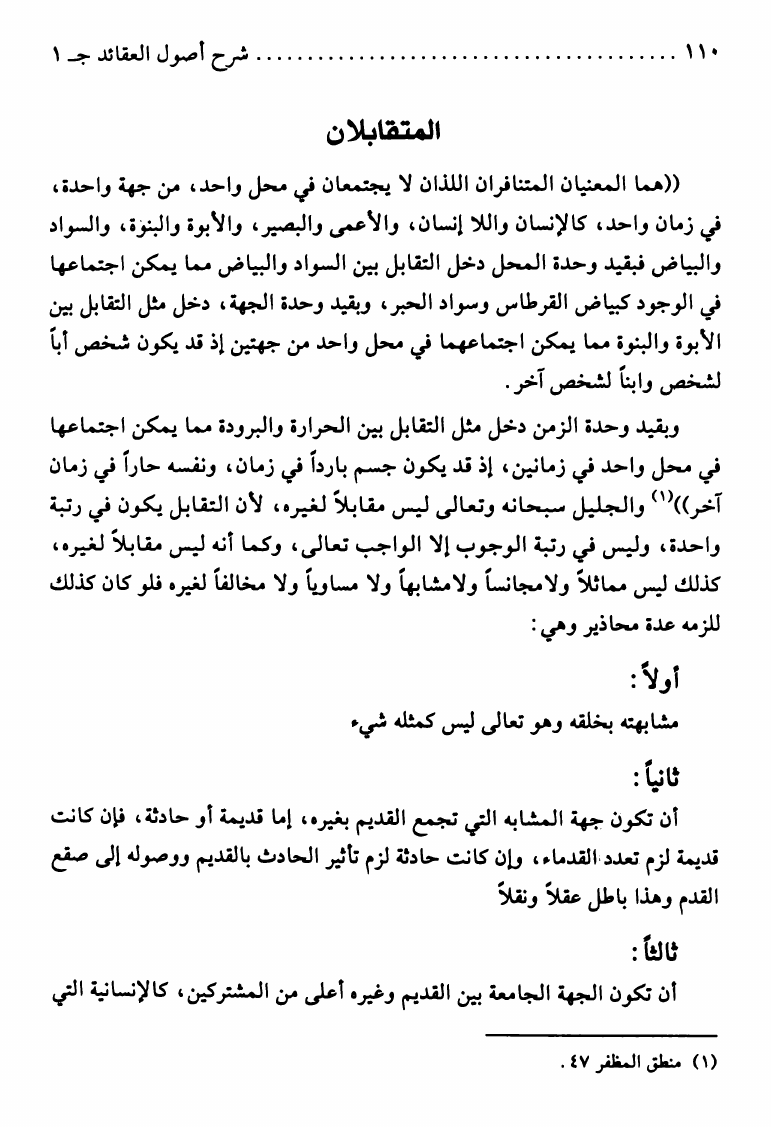 ١١٠ ........................................ شرح أصول العقائد جـ ١
المتقابلان
((هما المعنيان المتنافران اللذان لا يجتمعان في محل واحد، من جهة واحدة،
في زمان واحد، كالإنسان واللا إنسان، والأعمى والبصير، والأبوة والبنوّة، والسواد
والبياض فبقيد وحدة المحل دخل التقابل بين السواد والبياض مما يمكن اجتماعها
في الوجود كبياض القرطاس وسواد الحبر، وبقيد وحدة الجهة، دخل مثل التقابل بين
الأبوة والبنوة مما يمكن اجتماعهما في محل واحد من جهتين إذ قد يكون شخص أباً
لشخص وابناً لشخص آخر.
وبقيد وحدة الزمن دخل مثل التقابل بين الحرارة والبرودة مما يمكن اجتماعها
في محل واحد في زمانين، إذ قد يكون جسم بارداً في زمان، ونفسه حاراً في زمان
آخر))(١) والجليل سبحانه وتعالى ليس مقابلاً لغيره، لأن التقابل يكون في رتبة
واحدة، وليس في رتبة الوجوب إلا الواجب تعالى، وكما أنه ليس مقابلاً لغيره،
كذلك ليس مماثلاً ولامجانساً ولامشابهاً ولا مساوياً ولا مخالفاً لغيره فلو كان كذلك
للزمه عدة محاذير وهي:
أولاً:
مشابهته بخلقه وهو تعالى ليس كمثله شيء
ثانياً:
أن تكون جهة المشابه التي تجمع القديم بغيره، إما قديمة أو حادثة، فإن كانت
قديمة لزم تعدد القدماء، وإن كانت حادثة لزم تأثير الحادث بالقديم ووصوله إلى صقع
القدم وهذا باطل عقلاً ونقلاً
ثالثاً:
أن تكون الجهة الجامعة بين القديم وغيره أعلى من المشتركين، كالإنسانية التي
(١) منطق المظفر ٤٧.